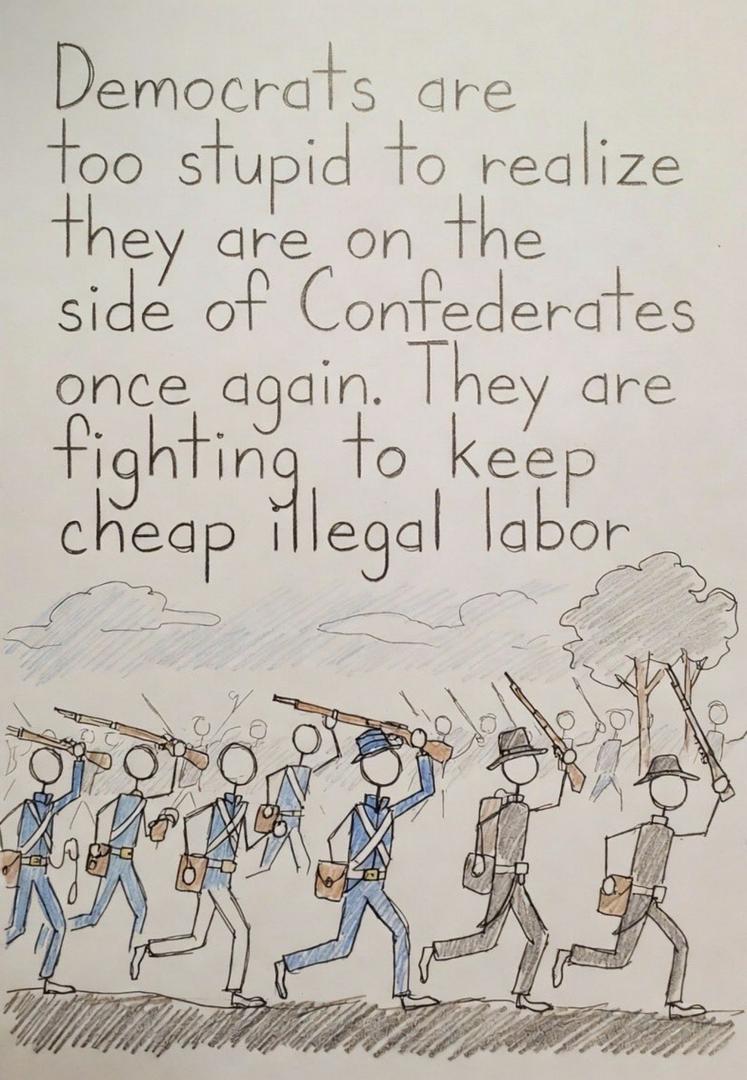 Democrats are
too stupid to realize
they are on the
side of Confederates
once again. They are
fighting to keep
cheap illegal labor